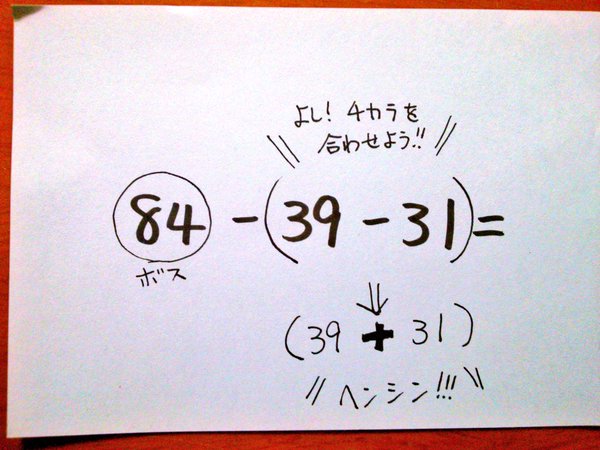 よし! チカラを
合わせよう!!
84 - (39 - 31) =
ボス
⇓
(39 + 31)
ヘンシン!!!